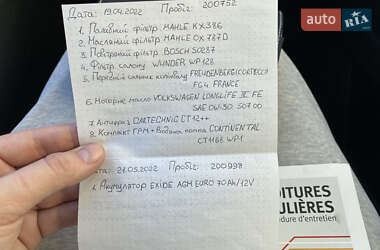 AUTO RIA
Дата: 19.04.2022 Пробіг: 200752
1. Паливний фільтр MAHLE KX386
2. Масляний фільтр MAHLE OX 787D
3. Повітряний фільтр BOSCH S0287
4. Фільтр салону WUNDER WP128
5. Передній сальник колінвалу FREUDENBERG (CORTECO)
FRANCE
6. Моторне масло VOLKSWAGEN LONGLIFE III FE
SAE 0W-30 507 00
7. Антифриз DARTECHNIC CT12++
8. Комплект ГРМ + Водяна помпа CONTINENTAL
CT1168 WP1
Дата: 21.05.2022 Пробіг: 200998
1. Акумулятор EXIDE AGM EURO 70Ah/12V
OITURES
ULIÈRES
dure d'entretien